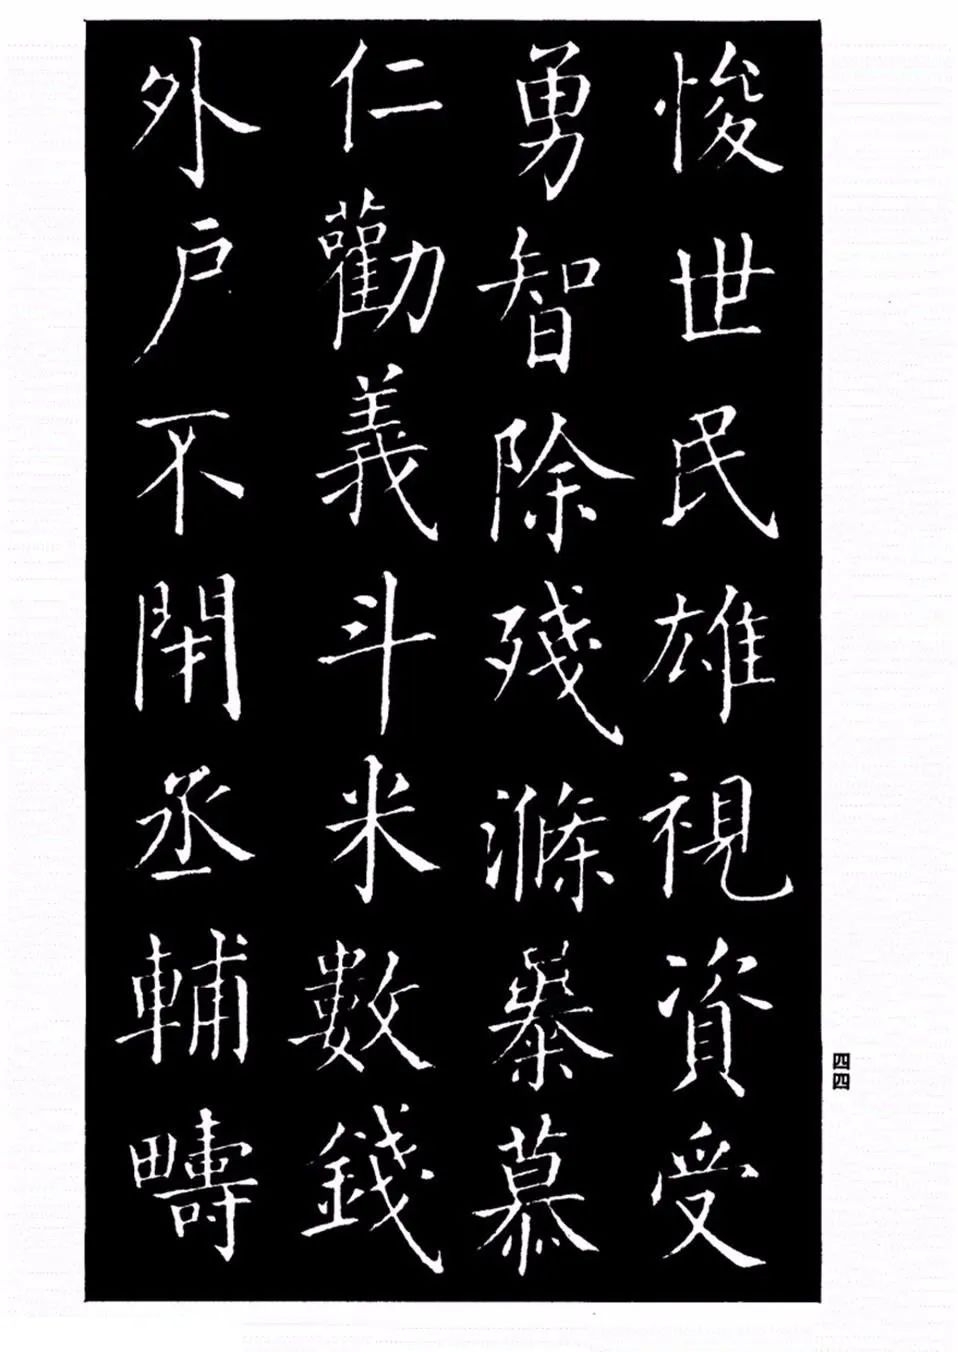 悛世民雄視資受
勇智除殘滌暴慕
仁勸義斗米數錢
外戶不閉丞輔疇
四四